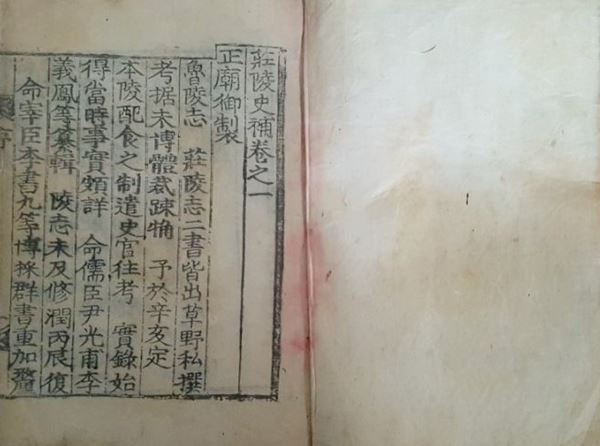 莊陵史補卷之一
正廟御製
魯陵志 莊陵志二書皆出草野私撰
考据未博體裁踈觕 予於辛亥定
本陵配食之制遣史官往考 實錄始
得當時事實頗詳 命儒臣尹光甫李
義鳳等纂輯 陵志未及修潤丙辰復
命宰臣李書九等博採群書重加釐
序